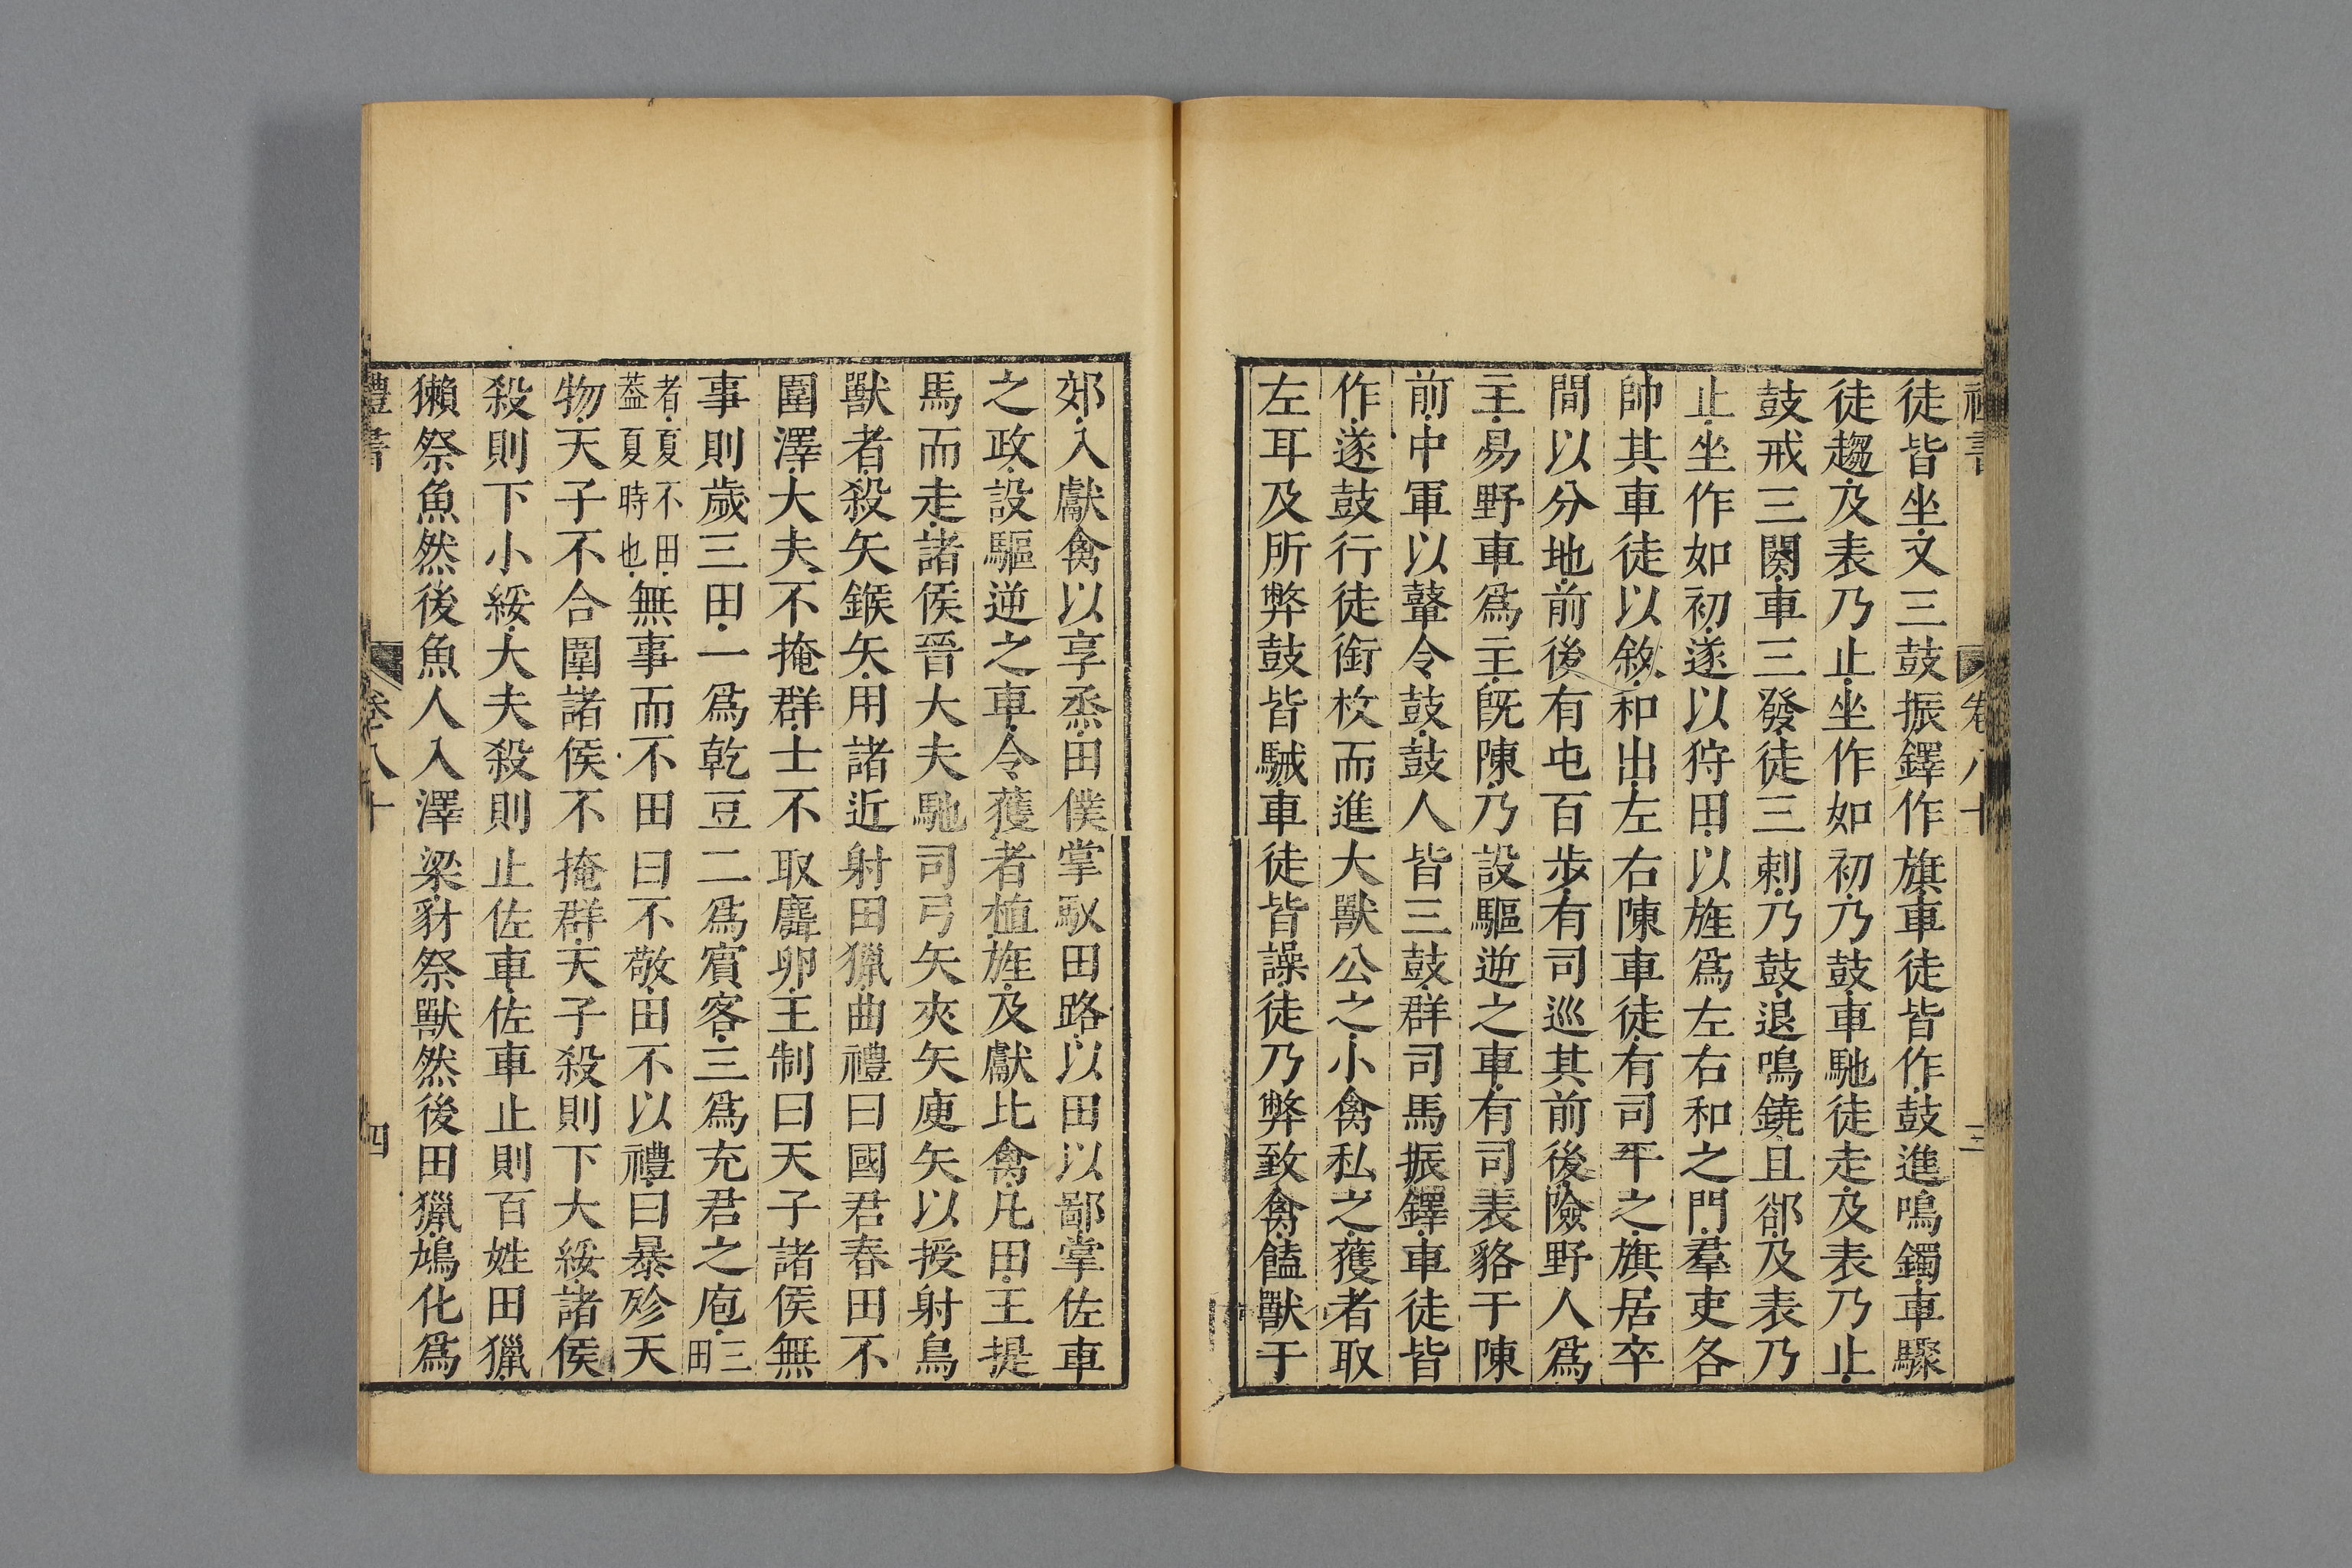 禮書 卷八十 三
徒皆坐又三鼓振鐸作旗車徒皆作鼓進鳴鐲車驟
徒趨及表乃止坐作如初乃鼓車馳徒走及表乃止
鼓戒三闋車三發徒三刺乃鼓退鳴鐃且郤及表乃
止坐作如初遂以狩田以旌爲左右和之門羣吏各
帥其車徒以敘和出左右陳車徒有司平之旗居卒
間以分地前後有屯百步有司巡其前後險野人爲
主易野車爲主旣陳乃設驅逆之車有司表貉于陳
前中軍以鼙令鼓鼓人皆三鼓群司馬振鐸車徒皆
作遂鼓行徒銜枚而進大獸公之小禽私之獲者取
左耳及所弊鼓皆駴車徒皆譟徒乃弊致禽饁獸于
郊入獻禽以享烝田僕掌馭田路以田以鄙掌佐車
之政設驅逆之車令獲者植旌及獻比禽凡田王提
馬而走諸侯晉大夫馳司弓矢夾矢庾矢以授射鳥
獸者殺矢鍭矢用諸近射田獵曲禮曰國君春田不
圍澤大夫不掩群士不取麛卵王制曰天子諸侯無
事則歲三田一爲乾豆二爲賓客三爲充君之庖三田
者夏不田蓋夏時也無事而不田曰不敬田不以禮曰暴殄天
物天子不合圍諸侯不掩群天子殺則下大綏諸侯
殺則下小綏大夫殺則止佐車佐車止則百姓田獵
獺祭魚然後魚人入澤梁豺祭獸然後田獵鳩化爲
禮書 卷八十 四